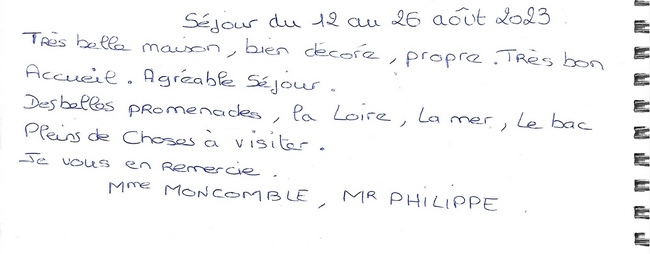 Séjour du 12 au 26 août 2023
Très belle maison, bien décoré, propre. Très bon
Accueil. Agréable Séjour.
Des belles promenades, la Loire, La mer, Le bac
Pleins de Choses à visiter.
Je vous en Remercie.
Mme MONCOMBLE, MR PHILIPPE